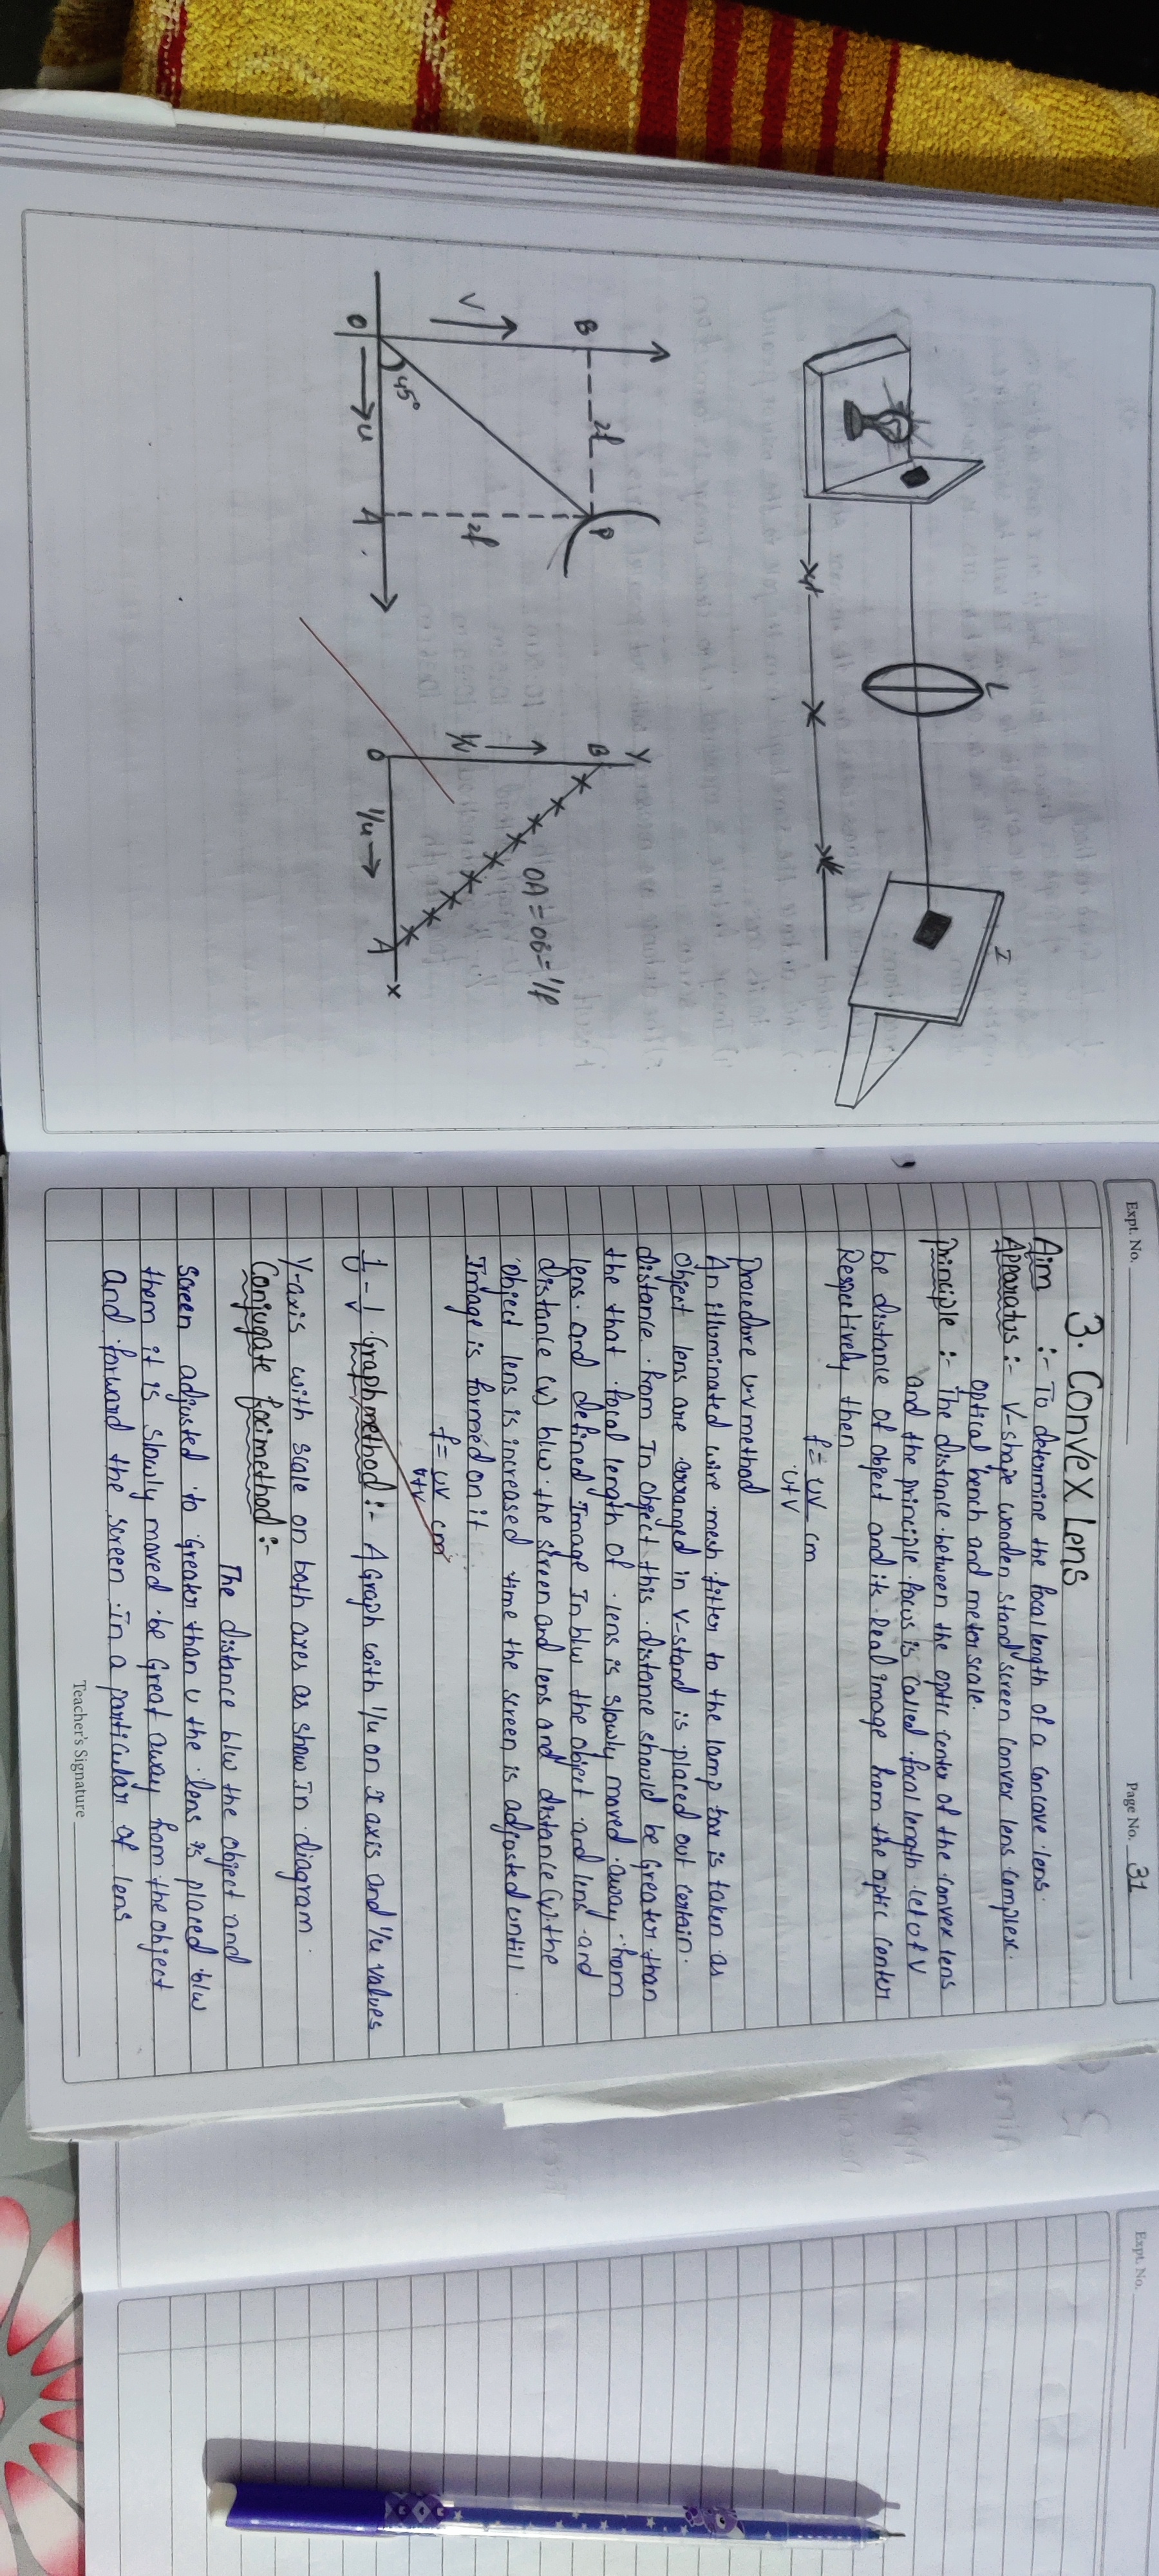 L
I
B
P
2f
2f
V
45°
O
→ u
A
Y
B
OA = OB = 1/f
1/v
O
A
x
1/u →
Expt. No.
Page No. 31
3. Convex Lens
Aim :- To determine the focal length of a concave lens.
Apparatus :- V-shape wooden stand screen convex lens complex.
optical bench and meter scale.
principle :- The distance between the optic center of the convex lens
and the principle focus is called focal length let u & v
be distance of object and its Real image from the optic center
Respectively then
f = uv cm
u+v
procedure u-v method
An illuminated wire mesh fitter to the lamp box is taken as
object lens are arranged in v-stand is placed out certain.
distance from In object this distance should be Greater than
the that focal length of lens is slowly moved away from
lens. and defined Image In b/w the object and lens and
distance (v) b/w the screen and lens and distance (u) the
object lens is increased time the screen is adjusted untill
Image is formed on it
f = uv cm
u+v
1/U - 1/V Graph method :- A Graph with 1/u on x axis and 1/u values
Y-axis with scale on both axes as show In diagram.
Conjugate foci method :-
The distance b/w the object and
screen adjusted to Greater than u the lens is placed b/w
them it is slowly moved be Great away from the object
and forward the screen In a particular of lens
Teacher's Signature
Expt. No.